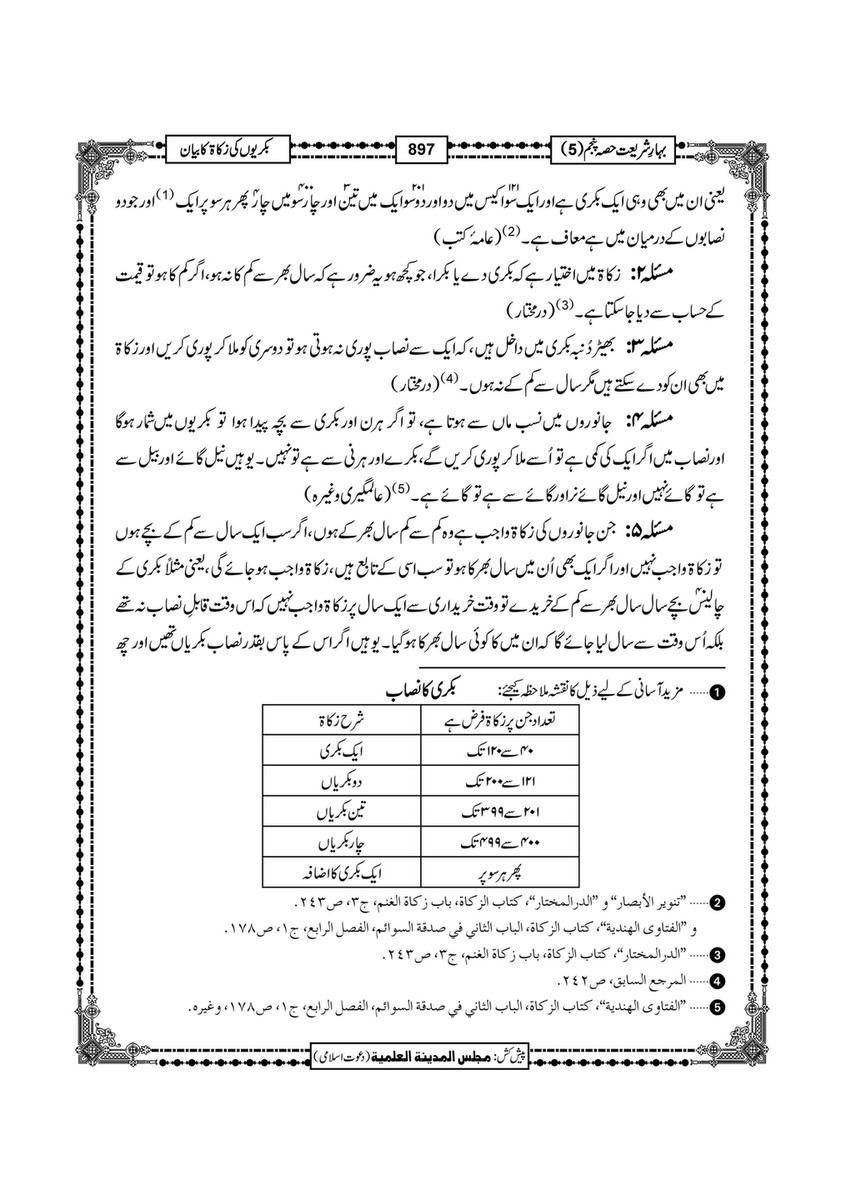 بہارِ شریعت حصہ پنجم (5)
897
بکریوں کی زکاۃ کا بیان
یعنی ان میں بھی وہی ایک بکری ہے اور ایک سو اکیس ۱۲۱ میں دو اور دو سو ایک ۲۰۱ میں تین ۳ اور چار سو ۴۰۰ میں چار ۴ پھر ہر سو پر ایک (1) اور جو دو
نصابوں کے درمیان میں ہے معاف ہے۔ (2) (عامۂ کتب)
مسئلہ ۲: زکاۃ میں اختیار ہے کہ بکری دے یا بکرا، جو کچھ ہو یہ ضرور ہے کہ سال بھر سے کم کا نہ ہو، اگر کم کا ہو تو قیمت
کے حساب سے دیا جا سکتا ہے۔ (3) (درمختار)
مسئلہ ۳: بھیڑ دُنبہ بکری میں داخل ہیں، کہ ایک سے نصاب پوری نہ ہوتی ہو تو دوسری کو ملا کر پوری کریں اور زکاۃ
میں بھی ان کو دے سکتے ہیں مگر سال سے کم کے نہ ہوں۔ (4) (درمختار)
مسئلہ ۴: جانوروں میں نسب ماں سے ہوتا ہے، تو اگر ہرن اور بکری سے بچہ پیدا ہوا تو بکریوں میں شمار ہوگا
اور نصاب میں اگر ایک کی کمی ہے تو اُسے ملا کر پوری کریں گے، بکرے اور ہرنی سے ہے تو نہیں۔ یوہیں نیل گائے اور بیل سے
ہے تو گائے نہیں اور نیل گائے نر اور گائے سے ہے تو گائے ہے۔ (5) (عالمگیری وغیرہ)
مسئلہ ۵: جن جانوروں کی زکاۃ واجب ہے وہ کم سے کم سال بھر کے ہوں، اگر سب ایک سال سے کم کے بچے ہوں
تو زکاۃ واجب نہیں اور اگر ایک بھی اُن میں سال بھر کا ہو تو سب اسی کے تابع ہیں، زکاۃ واجب ہو جائے گی، یعنی مثلاً بکری کے
چالیس ۴۰ بچے سال سال بھر سے کم کے خریدے تو وقت خریداری سے ایک سال پر زکاۃ واجب نہیں کہ اس وقت قابلِ نصاب نہ تھے
بلکہ اُس وقت سے سال لیا جائے گا کہ ان میں کا کوئی سال بھر کا ہو گیا۔ یوہیں اگر اس کے پاس بقدر نصاب بکریاں تھیں اور چھ
❶ ...... مزید آسانی کے لیے ذیل کا نقشہ ملاحظہ کیجئے: بکری کا نصاب
تعداد جن پر زکاۃ فرض ہے شرح زکاۃ
۴۰ سے ۱۲۰ تک ایک بکری
۱۲۱ سے ۲۰۰ تک دو بکریاں
۲۰۱ سے ۳۹۹ تک تین بکریاں
۴۰۰ سے ۴۹۹ تک چار بکریاں
پھر ہر سو پر ایک بکری کا اضافہ
❷ ...... ”تنویر الأبصار“ و ”الدرالمختار“، کتاب الزکاة، باب زکاة الغنم، ج۳، ص۲۴۳.
و ”الفتاوی الهندية“، کتاب الزکاة، الباب الثاني في صدقة السوائم، الفصل الرابع، ج۱، ص۱۷۸.
❸ ...... ”الدرالمختار“، کتاب الزکاة، باب زکاة الغنم، ج۳، ص۲۴۳.
❹ ...... المرجع السابق، ص۲۴۲.
❺ ...... ”الفتاوی الهندية“، کتاب الزکاة، الباب الثاني في صدقة السوائم، الفصل الرابع، ج۱، ص۱۷۸، وغیره.
پیش کش: مجلس المدينة العلمية (دعوت اسلامی)